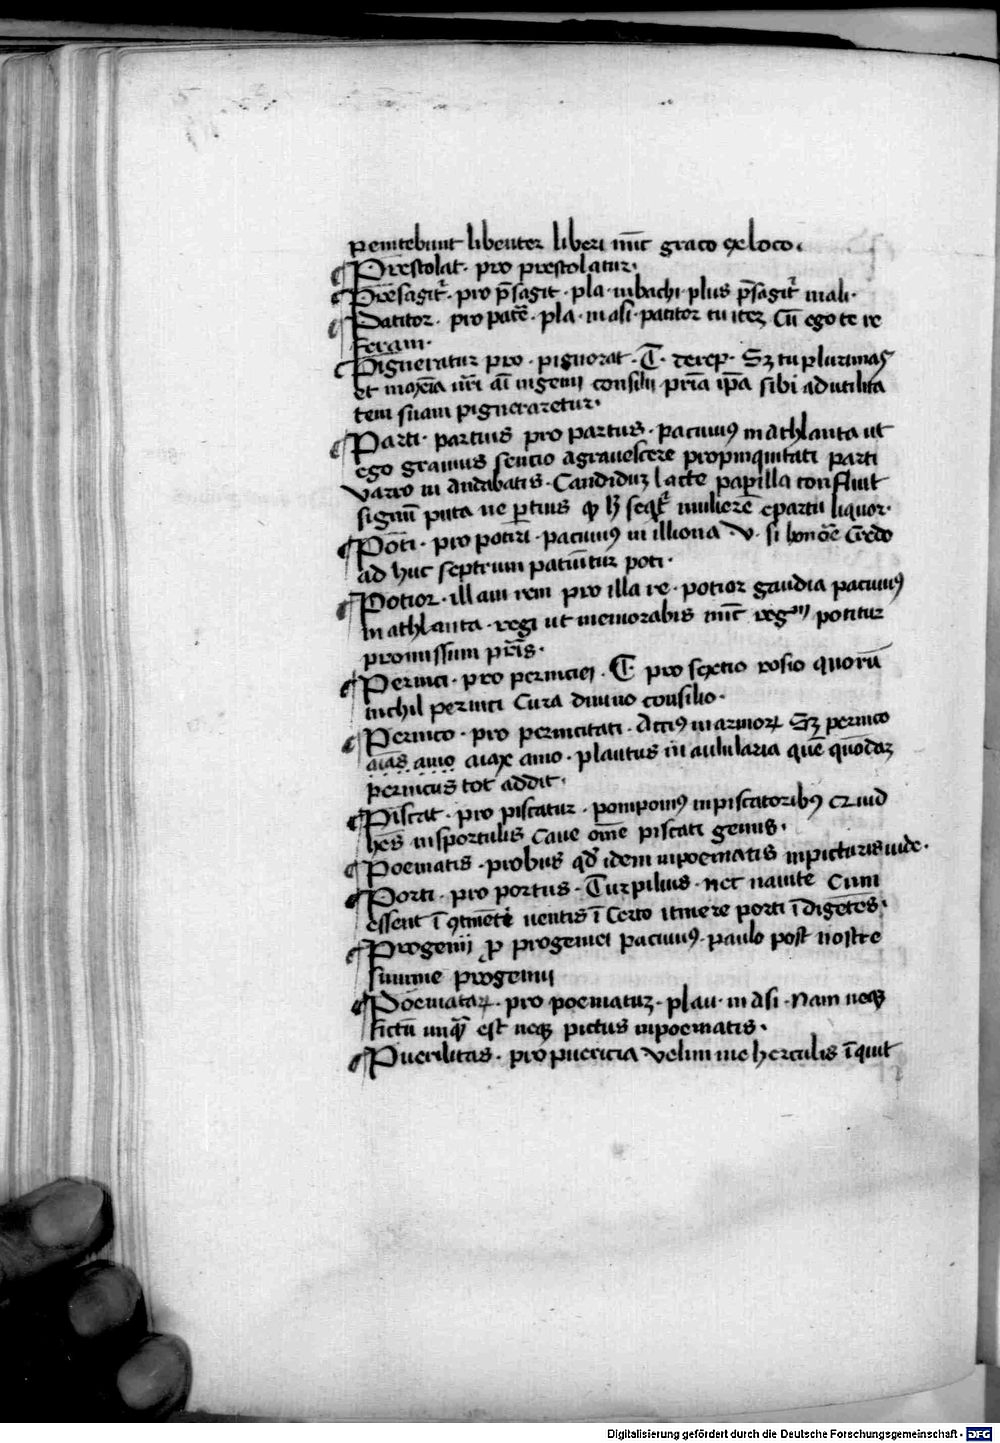 penitebunt libenter liberi nūc graco exloco.
Prēstolat. pro prestolatur.
Prēsagit᷑. pro p̄sagit. pla. inbachi. plus p̄sagit᷑ mali.
Patitor. pro patē. pla. in asi. patitor tu itez Cū ego te re
feram.
Pigneratur pro. pignorat. T. de rep. Sz tu plurimas
et maxīa nr̄i aī ingenij consilij pr̄ia ip̄a sibi adutilita
tem suam pigneraretur.
Parti. partius pro partus. pacuuiꝰ in athlanta ut
ego grauius sencio agrauescere propinquitati parti
Varro in Andabatis. Candiduz lacte papilla con fluit
signū puta ne ꝑtius ꝙ hͦ seqt᷑ mulierē epartu liquor.
Poti. pro potiri. pacuuiꝰ in illiona. V. si honōe Credo
ad huc septrum patiūtur poti.
Potior. illam rem pro illa re. potior gaudia pacuuiꝰ
in athlanta. regi ut memorabis nūc regᵐ potitur
promissum pr̄is.
Pernici. pro perniciei. T. pro sextio rosio quorū
nichil pernici Cura diuino consilio.
Pernico. pro pernicitati. Acciꝰ in armoꝝ Sz pernico
aias amo aiax amo. plautus in aulularia quē quōdaz
pernicus tot addit.
Piscat. pro piscatur. pomponiꝰ inpiscatoribꝰ Quid
hēs insportulis Caue om̄e piscati genus.
Poematis. probus qd̄ idem inpoematis inpicturis uide.
Porti. pro portus. Turpilius. nec nauite Cum
essent ī ꝯtinēti uentis ī Certo itinere porti īdigetēs.
Progenij ꝓ progeniei pacuuiꝰ. paulo post nostre
summe progenij
Poematoꝝ. pro poematuz. plau. in Asi. Nam neqꝫ
fictū unqᷓ est neqꝫ pictus inpoematis.
Puerilitas. pro puericia Velim me herculis īquit
Digitalisierung gefördert durch die Deutsche Forschungsgemeinschaft - DFG